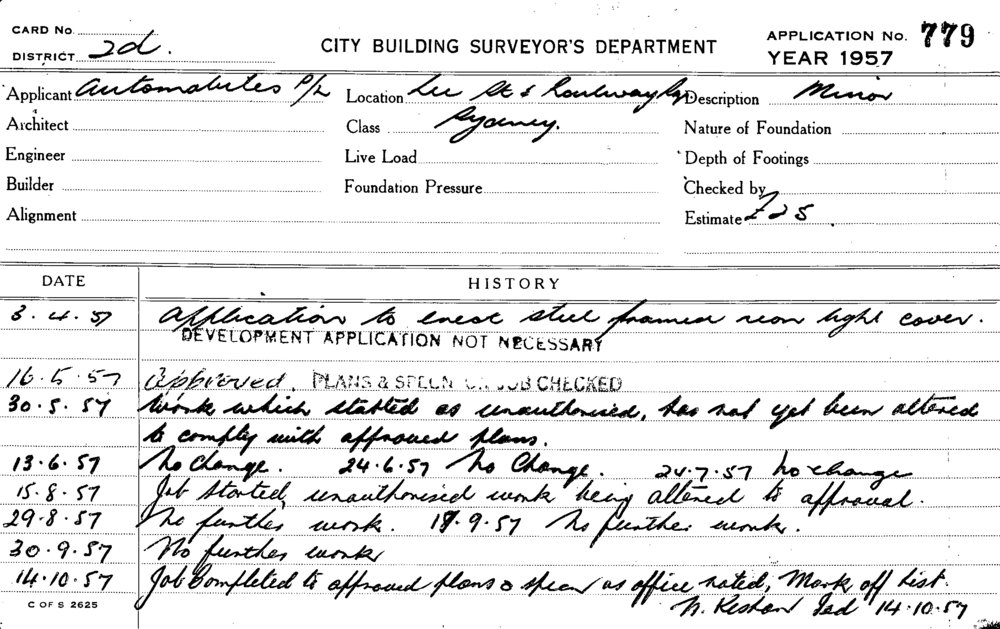 CARD No.
DISTRICT 2d.
CITY BUILDING SURVEYOR'S DEPARTMENT
APPLICATION No. 779
YEAR 1957
Applicant Automobiles P/L Location Lee St & Railway Sq Description Minor
Architect Class Sydney. Nature of Foundation
Engineer Live Load Depth of Footings
Builder Foundation Pressure Checked by
Alignment Estimate £25
DATE HISTORY
3.4.57 Application to erect steel framed neon light cover.
DEVELOPMENT APPLICATION NOT NECESSARY
16.5.57 Approved. PLANS & SPECN ON JOB CHECKED
30.5.57 Work which started as unauthorised, has not yet been altered
to comply with approved plans.
13.6.57 No change. 24.6.57 No Change. 24.7.57 No change
15.8.57 Job started, unauthorised work being altered to approval.
29.8.57 No further work. 17.9.57 No further work.
30.9.57 No further work
14.10.57 Job Completed to approved plans & specn as office noted, Mark off list.
N. 14.10.57
C OF S 2625